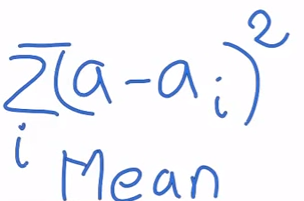 Σ(a-aᵢ)²
i
Mean